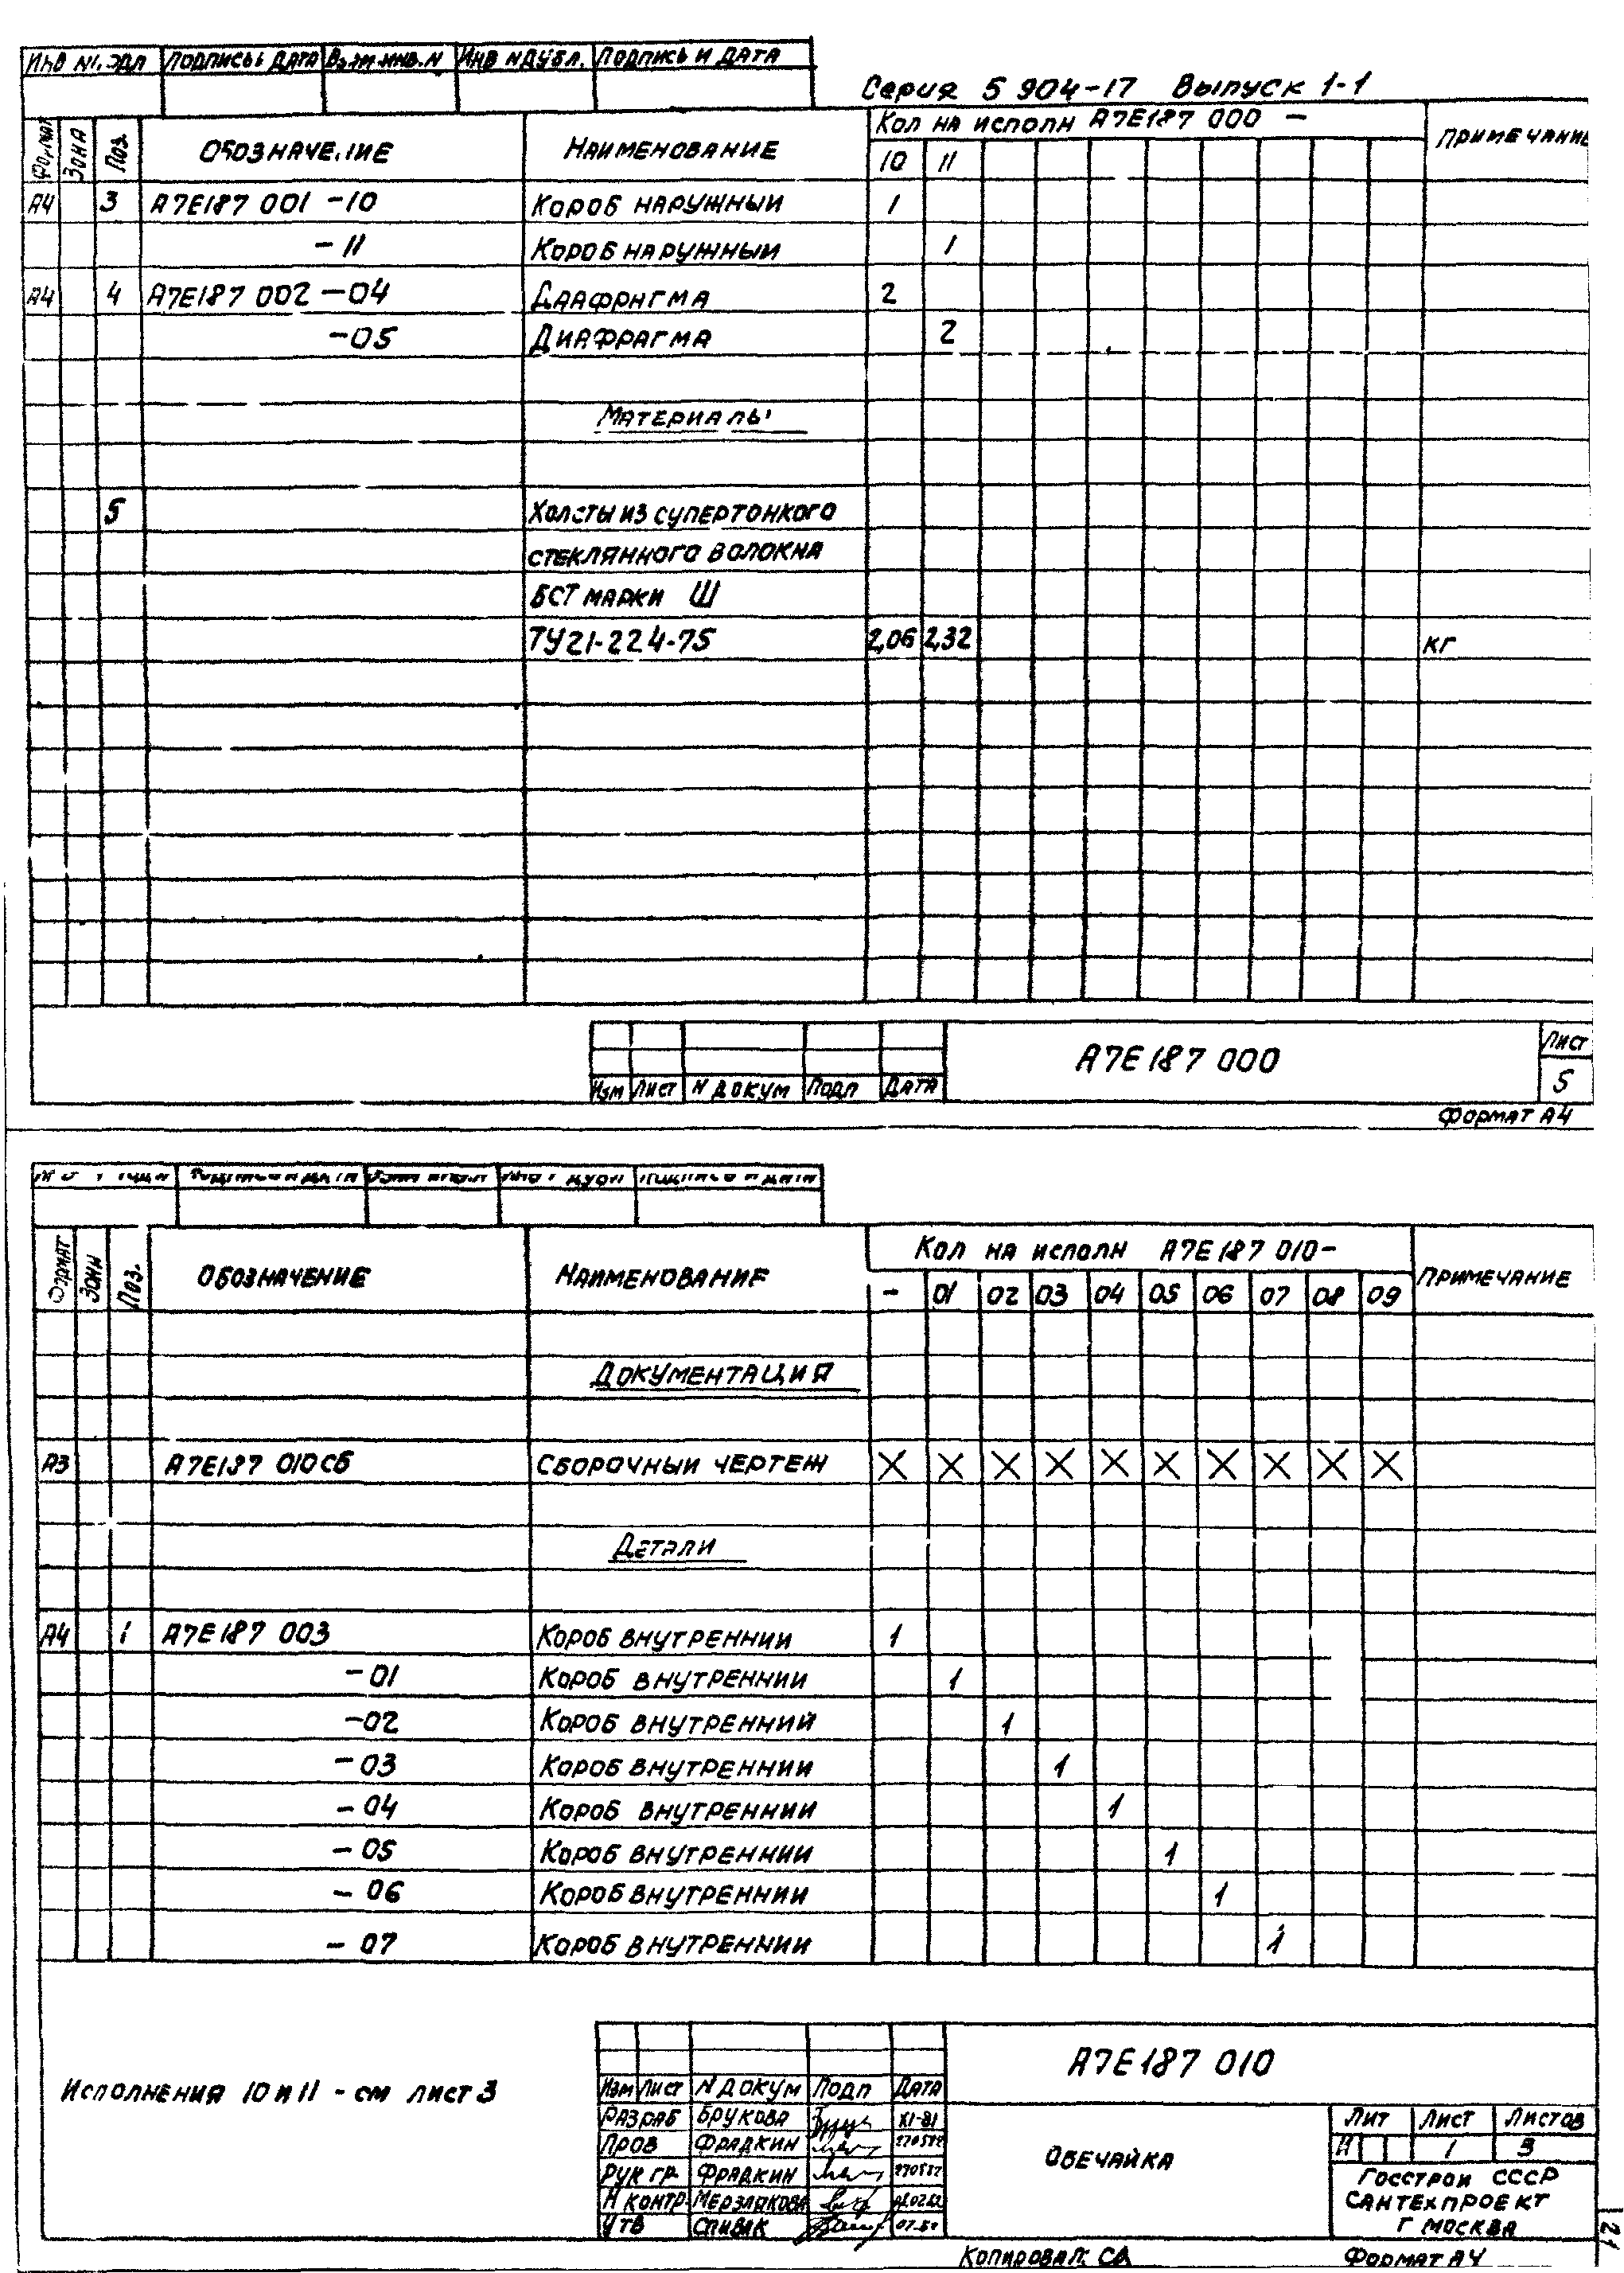 Инв № подл Подпись и дата Взам.инв.N Инв N дубл. Подпись и дата
Серия 5 904-17 Выпуск 1-1
Формат Зона Поз. Обозначение Наименование Кол на исполн А7Е187 000 - Примечание
10 11
А4 3 А7Е187 001 -10 Короб наружный 1
-11 Короб наружный 1
А4 4 А7Е187 002 -04 Диафрагма 2
-05 Диафрагма 2
Материалы
5 Холсты из супертонкого
стеклянного волокна
БСТ марки Ш
ТУ21-224-75 2,06 2,32 кг
А7Е187 000 Лист
5
Изм Лист N докум Подп Дата
Формат А4
Формат Зона Поз. Обозначение Наименование Кол на исполн А7Е187 010- Примечание
- 01 02 03 04 05 06 07 08 09
Документация
А3 А7Е187 010СБ Сборочный чертеж X X X X X X X X X X
Детали
А4 1 А7Е187 003 Короб внутренний 1
-01 Короб внутренний 1
-02 Короб внутренний 1
-03 Короб внутренний 1
-04 Короб внутренний 1
-05 Короб внутренний 1
-06 Короб внутренний 1
-07 Короб внутренний 1
Исполнения 10 и 11 - см лист 3
А7Е187 010
Изм Лист N докум Подп Дата
Разраб Брукова XI-81
Пров Фрадкин
Рук гр Фрадкин
Н контр Мерзлякова
Утв Спивак
Обечайка
Лит Лист Листов
И 1 3
Госстрой СССР
Сантехпроект
г Москва
Копировал: СА Формат А4
21